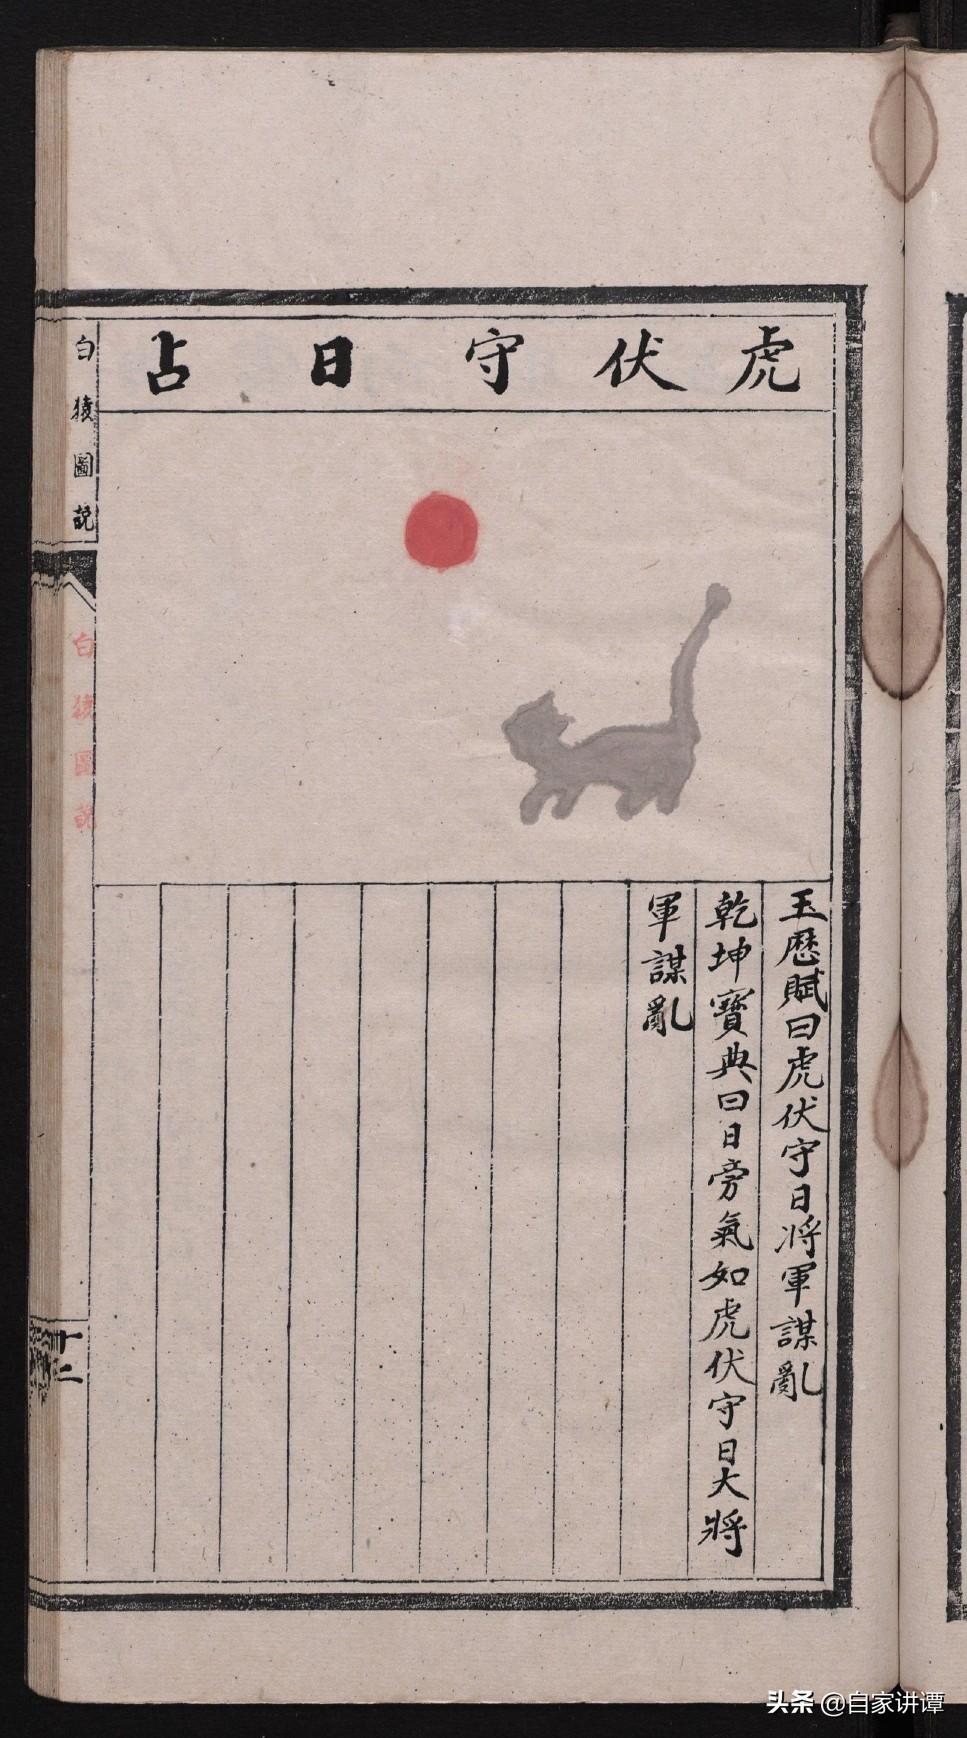 虎伏守日占
玉歷賦曰虎伏守日将軍謀亂
乾坤寶典曰日旁氣如虎伏守日大將
軍謀亂
白猿圖説
白猿圖説
十二
头条 @自家讲谭